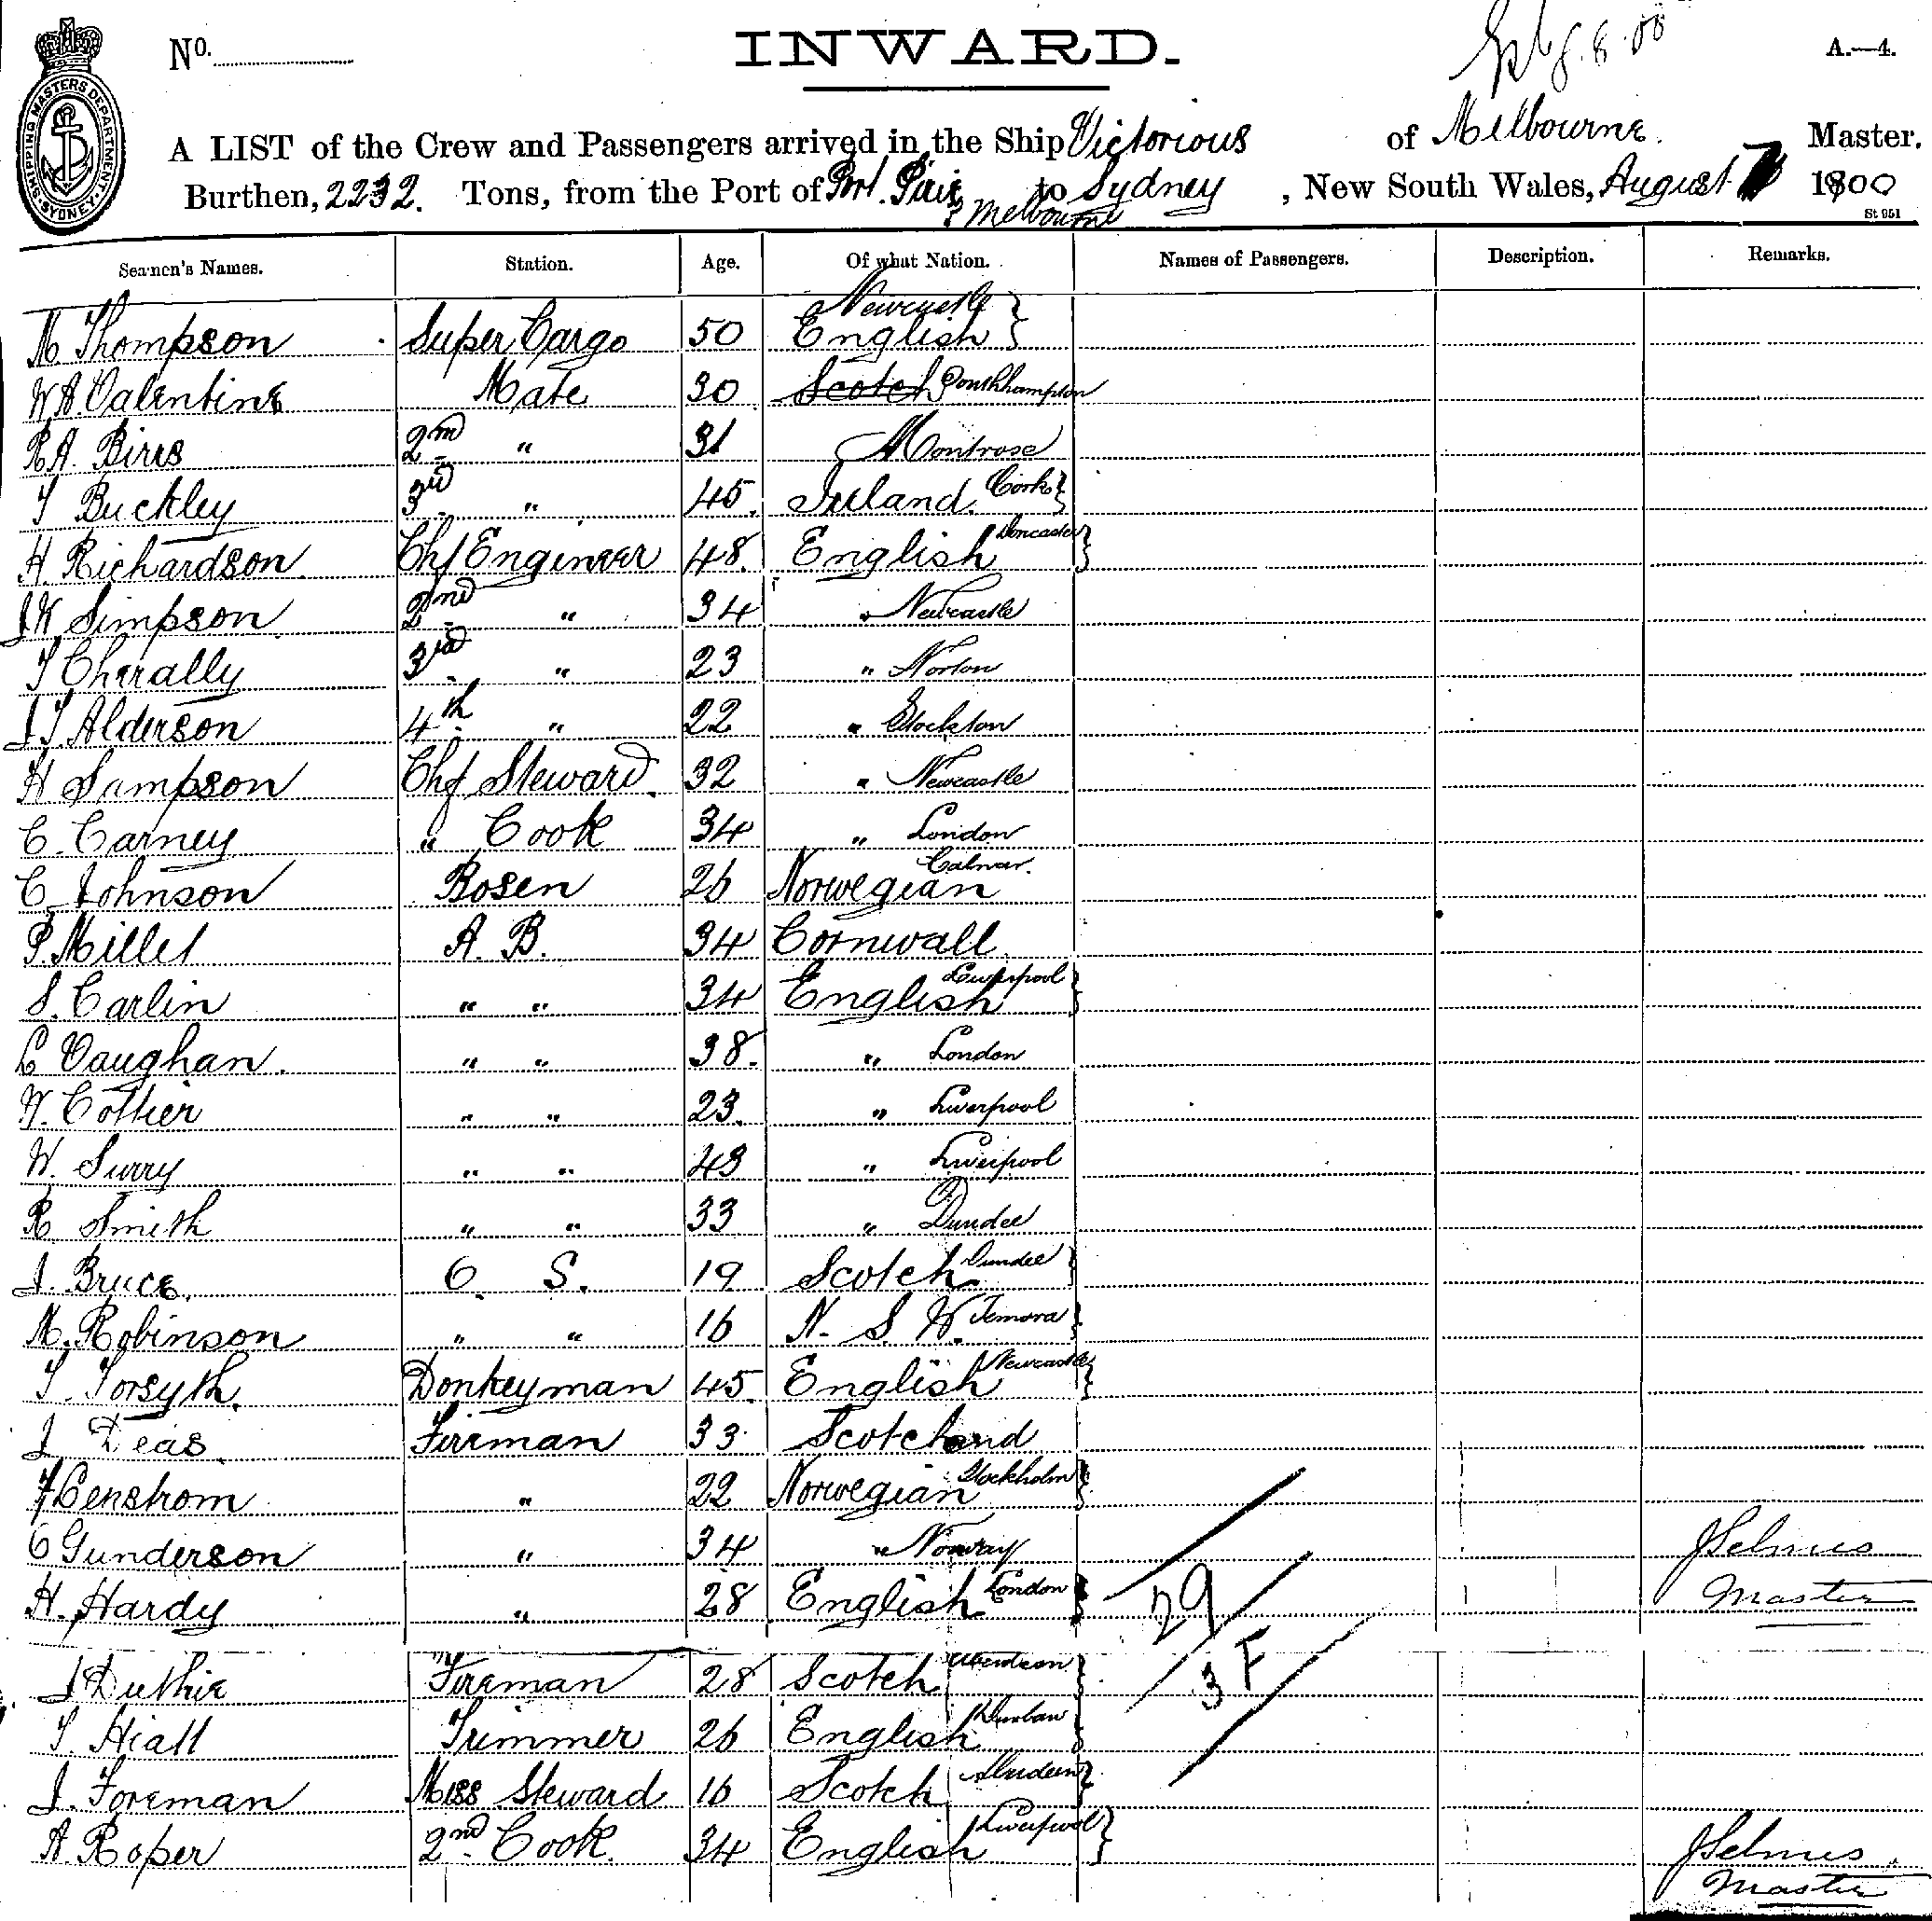 No. INWARD. 8.8.00 A.—4.
SHIPPING MASTERS DEPARTMENT. SYDNEY.
A LIST of the Crew and Passengers arrived in the Ship Victorious of Melbourne. Master.
Burthen, 2232. Tons, from the Port of Port Pirie & Melbourne to Sydney, New South Wales, August 7 1900
St 951
Seamen's Names. Station. Age. Of what Nation. Names of Passengers. Description. Remarks.
M Thompson Super Cargo 50 English Newcastle
W.A. Valentine Mate 30 Scotch Southhampton
R.A. Birss 2nd " 31 Montrose
T Buckley 3rd " 45. Ireland. Cork
H. Richardson. Chf Engineer 48. English Doncaster
J W Simpson 2nd " 34 " Newcastle
T Cherally 3rd " 23 " Norton
J T Alderson 4th " 22 " Stockton
H Sampson Chf Steward. 32 " Newcastle
C. Carney " Cook 34 " London
C. Johnson Bosen 26 Norwegian Calmar.
P. Millet A. B. 34 Cornwall.
S. Carlin " " 34 English Liverpool
L Vaughan. " " 38. " London
W. Collier " " 23. " Liverpool
W. Surry " " 43 " Liverpool
R Smith " " 33 " Dundee
J. Bruce. O. S. 19 Scotch Dundee
M. Robinson " " 16 N. S. W. Temora
T. Forsyth. Donkeyman 45. English Newcastle
J Deas Fireman 33. Scotchand
F Censtrom " 22 Norwegian Stockholm
C Gunderson " 34 " Norway JSelmes
H. Hardy " 28 English London 29 Master
J Duthie Fireman 28 Scotch Aberdeen 3 F
T. Hiatt Trimmer 26 English Durban
J. Foreman Mess Steward 16 Scotch Aberdeen
A. Roper 2nd Cook. 34 English Liverpool JSelmes.
Master